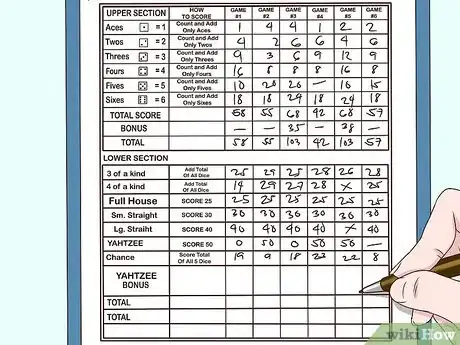 UPPER SECTION HOW TO SCORE GAME #1 GAME #2 GAME #3 GAME #4 GAME #5 GAME #6
Aces = 1 Count and Add Only Aces 1 4 4 1 2 2
Twos = 2 Count and Add Only Twos 4 2 6 6 4 6
Threes = 3 Count and Add Only Threes 9 3 6 9 12 9
Fours = 4 Count and Add Only Fours 16 8 8 8 16 8
Fives = 5 Count and Add Only Fives 10 20 20 — 10 15
Sixes = 6 Count and Add Only Sixes 18 18 24 18 24 18
TOTAL SCORE 58 55 68 42 68 57
BONUS — — 35 — 38 —
TOTAL 58 55 103 42 103 57
LOWER SECTION
3 of a kind Add Total Of All Dice 25 29 25 28 26 28
4 of a kind Add Total Of All Dice 14 29 27 28 X 25
Full House SCORE 25 25 25 25 25 25 25
Sm. Straight SCORE 30 30 30 30 30 30 30
Lg. Straiht SCORE 40 40 40 40 40 X 40
YAHTZEE SCORE 50 0 50 0 50 50 —
Chance Score Total Of All 5 Dice 19 9 18 22 22 8
YAHTZEE BONUS
TOTAL
TOTAL
wikiHow